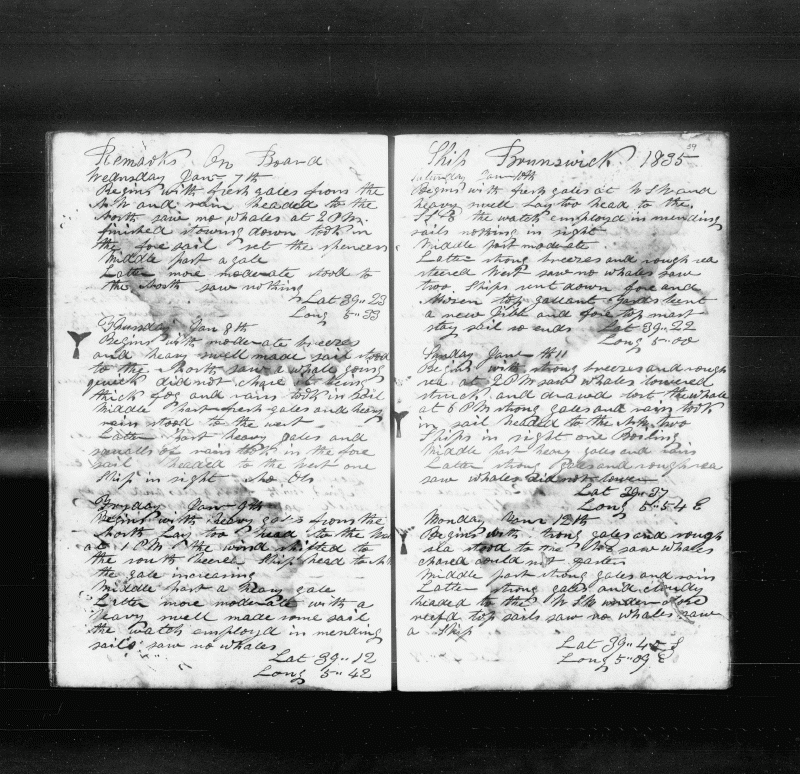 Remarks On Board
Wednsday Jan 7th
Begins with fresh gales from the
NW and rain headed to the
North saw no whales at 2 PM
finished stowing down took in
the fore sail set the spencer
Middle part a gale
Latter more moderate stood to
the North saw nothing
Lat 39" 23
Long 5" 33
Thursday Jan 8th
Begins with moderate breezes
and heavy swell made sail stood
to the North saw a whale going
quick did not chase it being
thick fog and rains took in sail
Middle part fresh gales and heavy
rains stood to the west
Latter part heavy gales and
squalls of rain took in the fore
sail headed to the west one
Ship in sight No Obs
Fryday Jan 9th
Begins with heavy gales from the
North Lay too head to the
at 1 PM the wind shifted to
the south wheeled Ship head to
the gale increasing
Middle part a heavy gale
Latter more moderate with a
heavy swell made some sail
the watch employd in mending
sails saw no whales
Lat 39" 12
Long 5" 42
Ship Brunswick 1835
39
Saturday Jan 10th
Begins with fresh gales at WSW and
heavy swell Lay too head to the
the watch employd in mending
sails nothing in sight
Middle part moderate
Latter strong breezes and rough sea
steered West saw no whales saw
two Ships sent down fore and
Mizen top gallant yards bent
a new Jibb and fore top mast
stay sail so ends Lat 39" 22
Long 5" 00
Sunday Jan th 11
Begins with strong breezes and rough
sea at 2 PM saw whales lowered
struck and drawed lost the whale
at 6 PM strong gales and rain took
in sail headed to the NW two
Ships in sight one Boiling
Middle part heavy gales and rains
Latter strong gales and rough sea
saw whales did not lower
Lat 39" 37
Long 5" 54 E
Monday Jan 12th
Begins with strong gales and rough
sea stood to the saw whales
chased could not fasten
Middle part strong gales and rain
Latter strong gales and cloudy
headed to the WSW under close
reefd top sails saw no whales saw
a Ship
Lat 39" 45 S
Long 5" 09 E